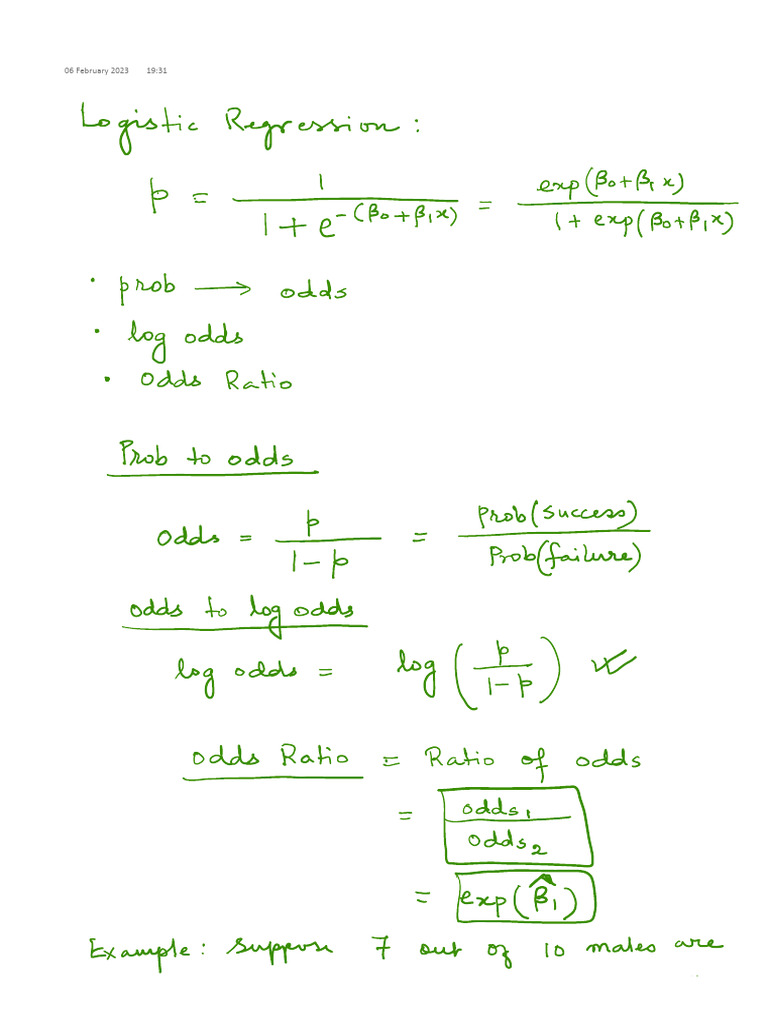 06 February 2023 19:31
Logistic Regression :
p = 1 / (1 + e^-(β0 + β1 x)) = exp(β0 + β1 x) / (1 + exp(β0 + β1 x))
• prob → odds
• log odds
• Odds Ratio
Prob to odds
odds = p / (1 - p) = Prob(success) / Prob(failure)
odds to log odds
log odds = log (p / (1 - p)) ✓
odds Ratio = Ratio of odds
= odds1 / odds2
= exp(β̂1)
Example : Suppose 7 out of 10 males are